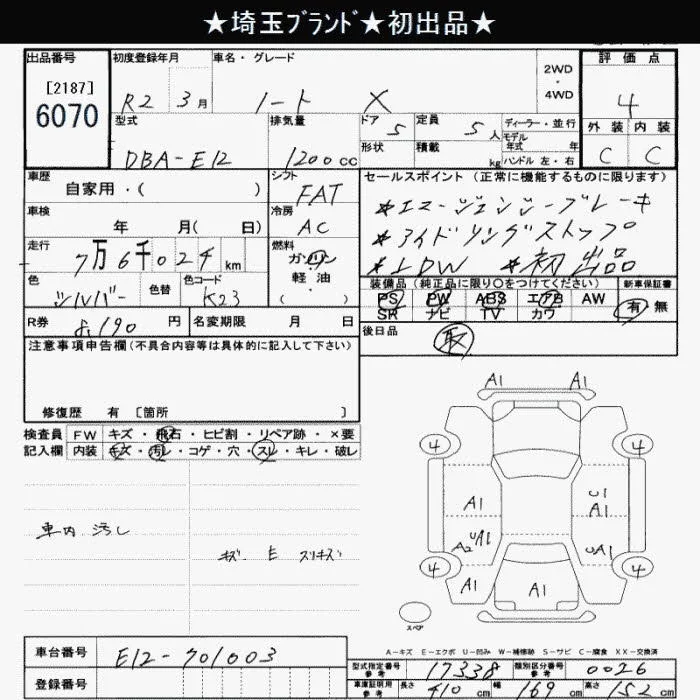 ★埼玉ﾌﾞﾗﾝﾄﾞ★初出品★
出品番号 初度登録年月 車名・グレード 2WD・4WD 評価点
[2187] 6070
R2 3月 ノート X 4
型式 排気量 ドア 5 定員 5人 ディーラー・並行
モデル年式 年 外装 内装
DBA-E12 1200cc 形状 積載 kg ハンドル 左・右 C C
車歴 シフト セールスポイント (正常に機能するものに限ります)
自家用・( ) FAT *エマージェンシーブレーキ
車検 冷房
年 月( 日) AC *アイドリングストップ
走行 燃料
7万6千024km ガソリン *LDW *初出品
軽油・( )
色 色替 色コード 装備品 (純正品に限り○をつけてください) 新車保証書
シルバー K23 PS PW ABS エアB AW 有・無
SR ナビ TV カワ
R券 8,190円 名変期限 月 日 後日品
取
注意事項申告欄 (不具合内容等は具体的に記入して下さい)
修復歴 有 [箇所 ]
検査員 FW キズ・飛石・ヒビ割・リペア跡・×要
記入欄 内装 キズ・汚レ・コゲ・穴・スレ・キレ・破レ
車内 汚し
キズ E スリキズ
A1 A1
4 4
A1 U1
A1
A2 UA1 UA1
4 4
A1 A1
スペア
A-キズ E-エクボ U-凹み W-補修跡 S-サビ C-腐食 XX-交換済
車台番号 E12-701003
登録番号
型式指定番号 参考 17338 類別区分番号 参考 0026
車庫証明用 参考 長さ 410cm 幅 169cm 高さ 152cm